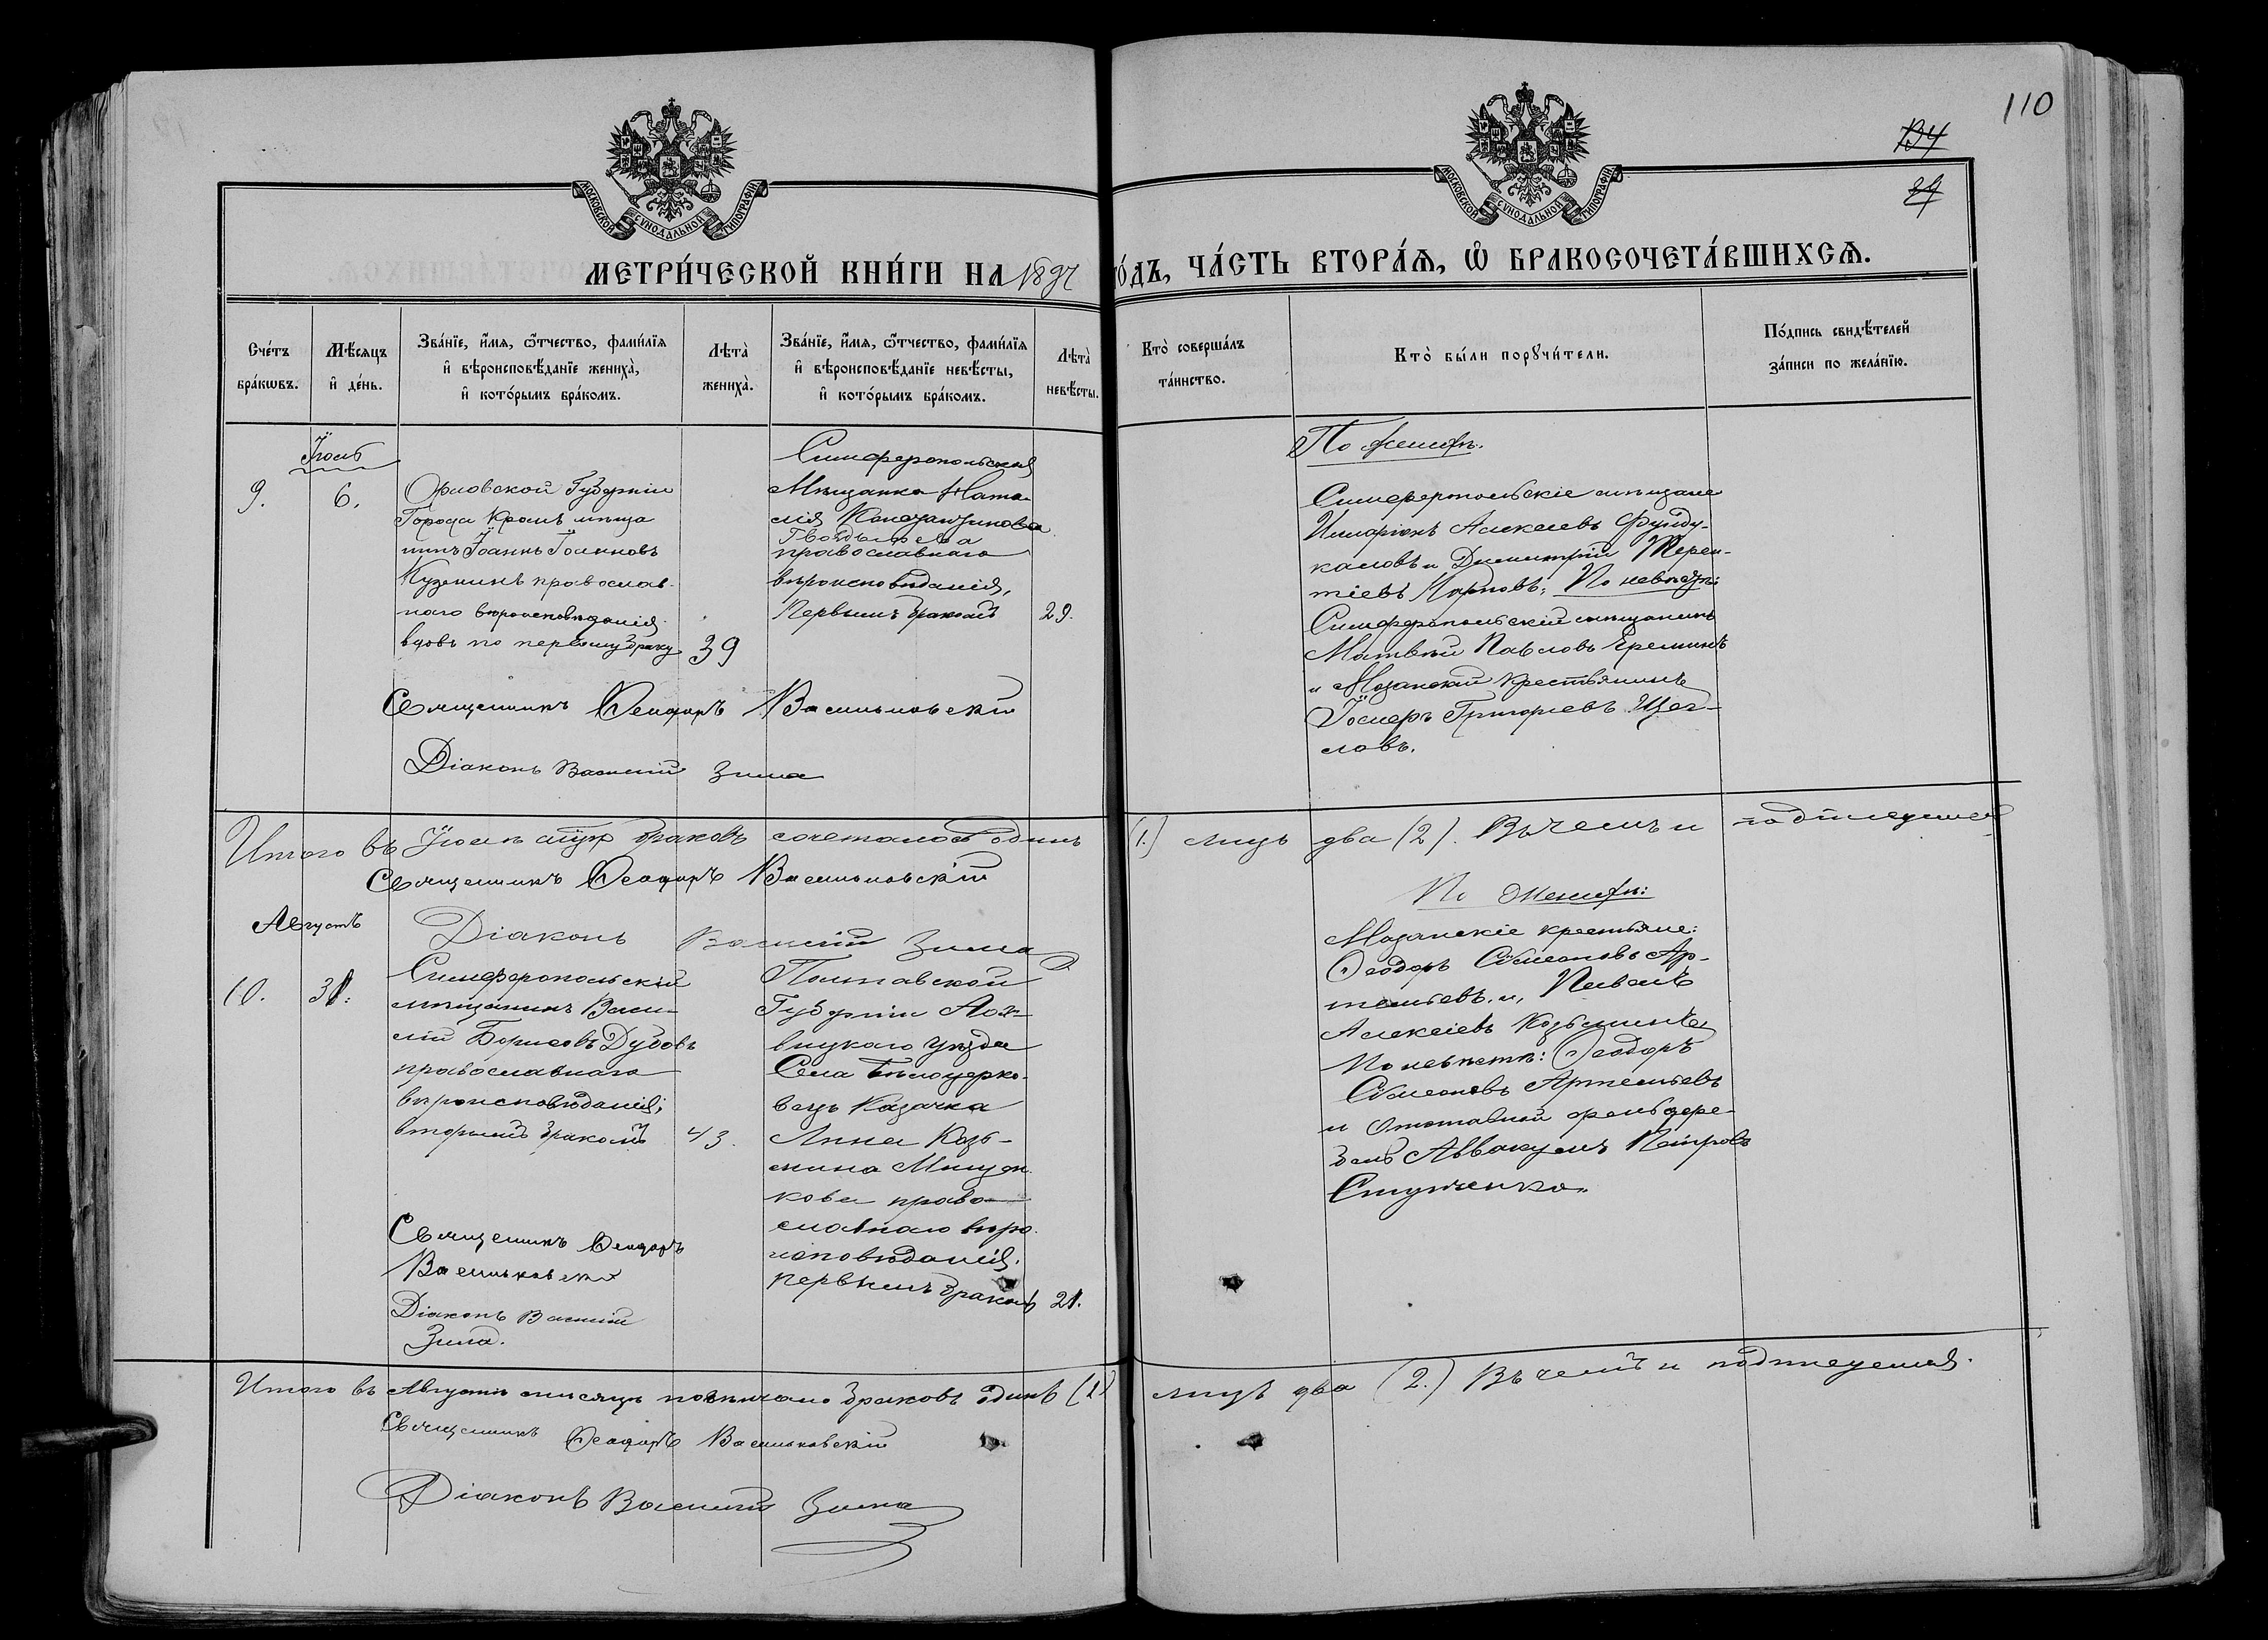 110
МОСКОВСКОЙ СУНОДАЛЬНОЙ ТИПОГРАФІИ
МОСКОВСКОЙ СУНОДАЛЬНОЙ ТИПОГРАФІИ
МЕТРИ́ЧЕСКОЙ КНИ́ГИ НА 1897 ГО́ДЪ, ЧА́СТЬ ВТОРА́Я, Ѡ҆ БРАКОСОЧЕТА́ВШИХСЯ.
Сче́тъ
бра́кѡвъ.
Мѣ́сяцъ
и҆ де́нь.
Зва́нїе, и҆́мя, ѻ҆́тчество, фами́лїя
и҆ вѣроисповѣ́данїе жениха̀,
и҆ кото́рымъ бра́комъ.
Лѣта̀
жениха̀.
Зва́нїе, и҆́мя, ѻ҆́тчество, фами́лїя
и҆ вѣроисповѣ́данїе невѣ́сты,
и҆ кото́рымъ бра́комъ.
Лѣта̀
невѣ́сты.
Кто̀ соверша́лъ
та́инство.
Кто̀ бы́ли порꙋчи́тели.
По́дпись свидѣ́телей
за́писи по жела́нїю.
9.
6.
Орловской Губерніи
Города Кромъ мѣща
нинъ Іоаннъ Іоанновъ
Кузенинъ православ-
наго вѣроисповѣданія
вдовъ по первому браку
39
Симферопольская
Мѣщанка Ната-
лія Константинова
Гвоздырева
православнаго
вѣроисповѣданія,
Первымъ бракомъ
29.
По женихѣ.
Симферопольскіе мѣщане
Иларіонъ Алексѣевъ Фунду-
каловъ и Димитрій Терен-
тіевъ Карповъ; По невѣстѣ:
Симферопольскій мѣщанинъ
Матвѣй Павловъ Ереминъ
и Мазанскій крестьянинъ
Іосифъ Григорьевъ Щег-
ловъ.
Священникъ Ѳеодоръ Васильковскій
Діаконъ Василій Зима
Итого въ Іюлѣ браковъ сочеталось одинъ (1.) лицъ два (2). Въ чемъ и подписуемся
Священникъ Ѳеодоръ Васильковскій
Діаконъ Василій Зима
Августъ
10.
31.
Симферопольскій
мѣщанинъ Васи-
лій Борисовъ Дубовъ
православнаго
вѣроисповѣданія,
вторымъ бракомъ
43.
Полтавской
Губерніи Лох-
вицкаго уѣзда
Села Бѣлоцерко-
вецъ Казачка
Анна Козь-
мина Мищен-
кова право-
славнаго вѣро-
исповѣданія.
первымъ бракомъ
21.
По женихѣ:
Мазанскіе крестьяне:
Ѳеодоръ Сѵмеоновъ Ар-
темьевъ и,
Алексіевъ Козьминъ
По невѣстѣ: Ѳеодоръ
Сѵмеоновъ Артемьевъ
и отставной фельдфе-
бель Аввакумъ Петровъ
Священникъ Ѳеодоръ
Васильковскій
Діаконъ Василій
Зима.
Итого въ Августѣ мѣсяцѣ повѣнчано браковъ одинъ (1) лицъ два (2.) Въ чемъ и подписуемся.
Священникъ Ѳеодоръ Васильковскій
Діаконъ Василій Зима